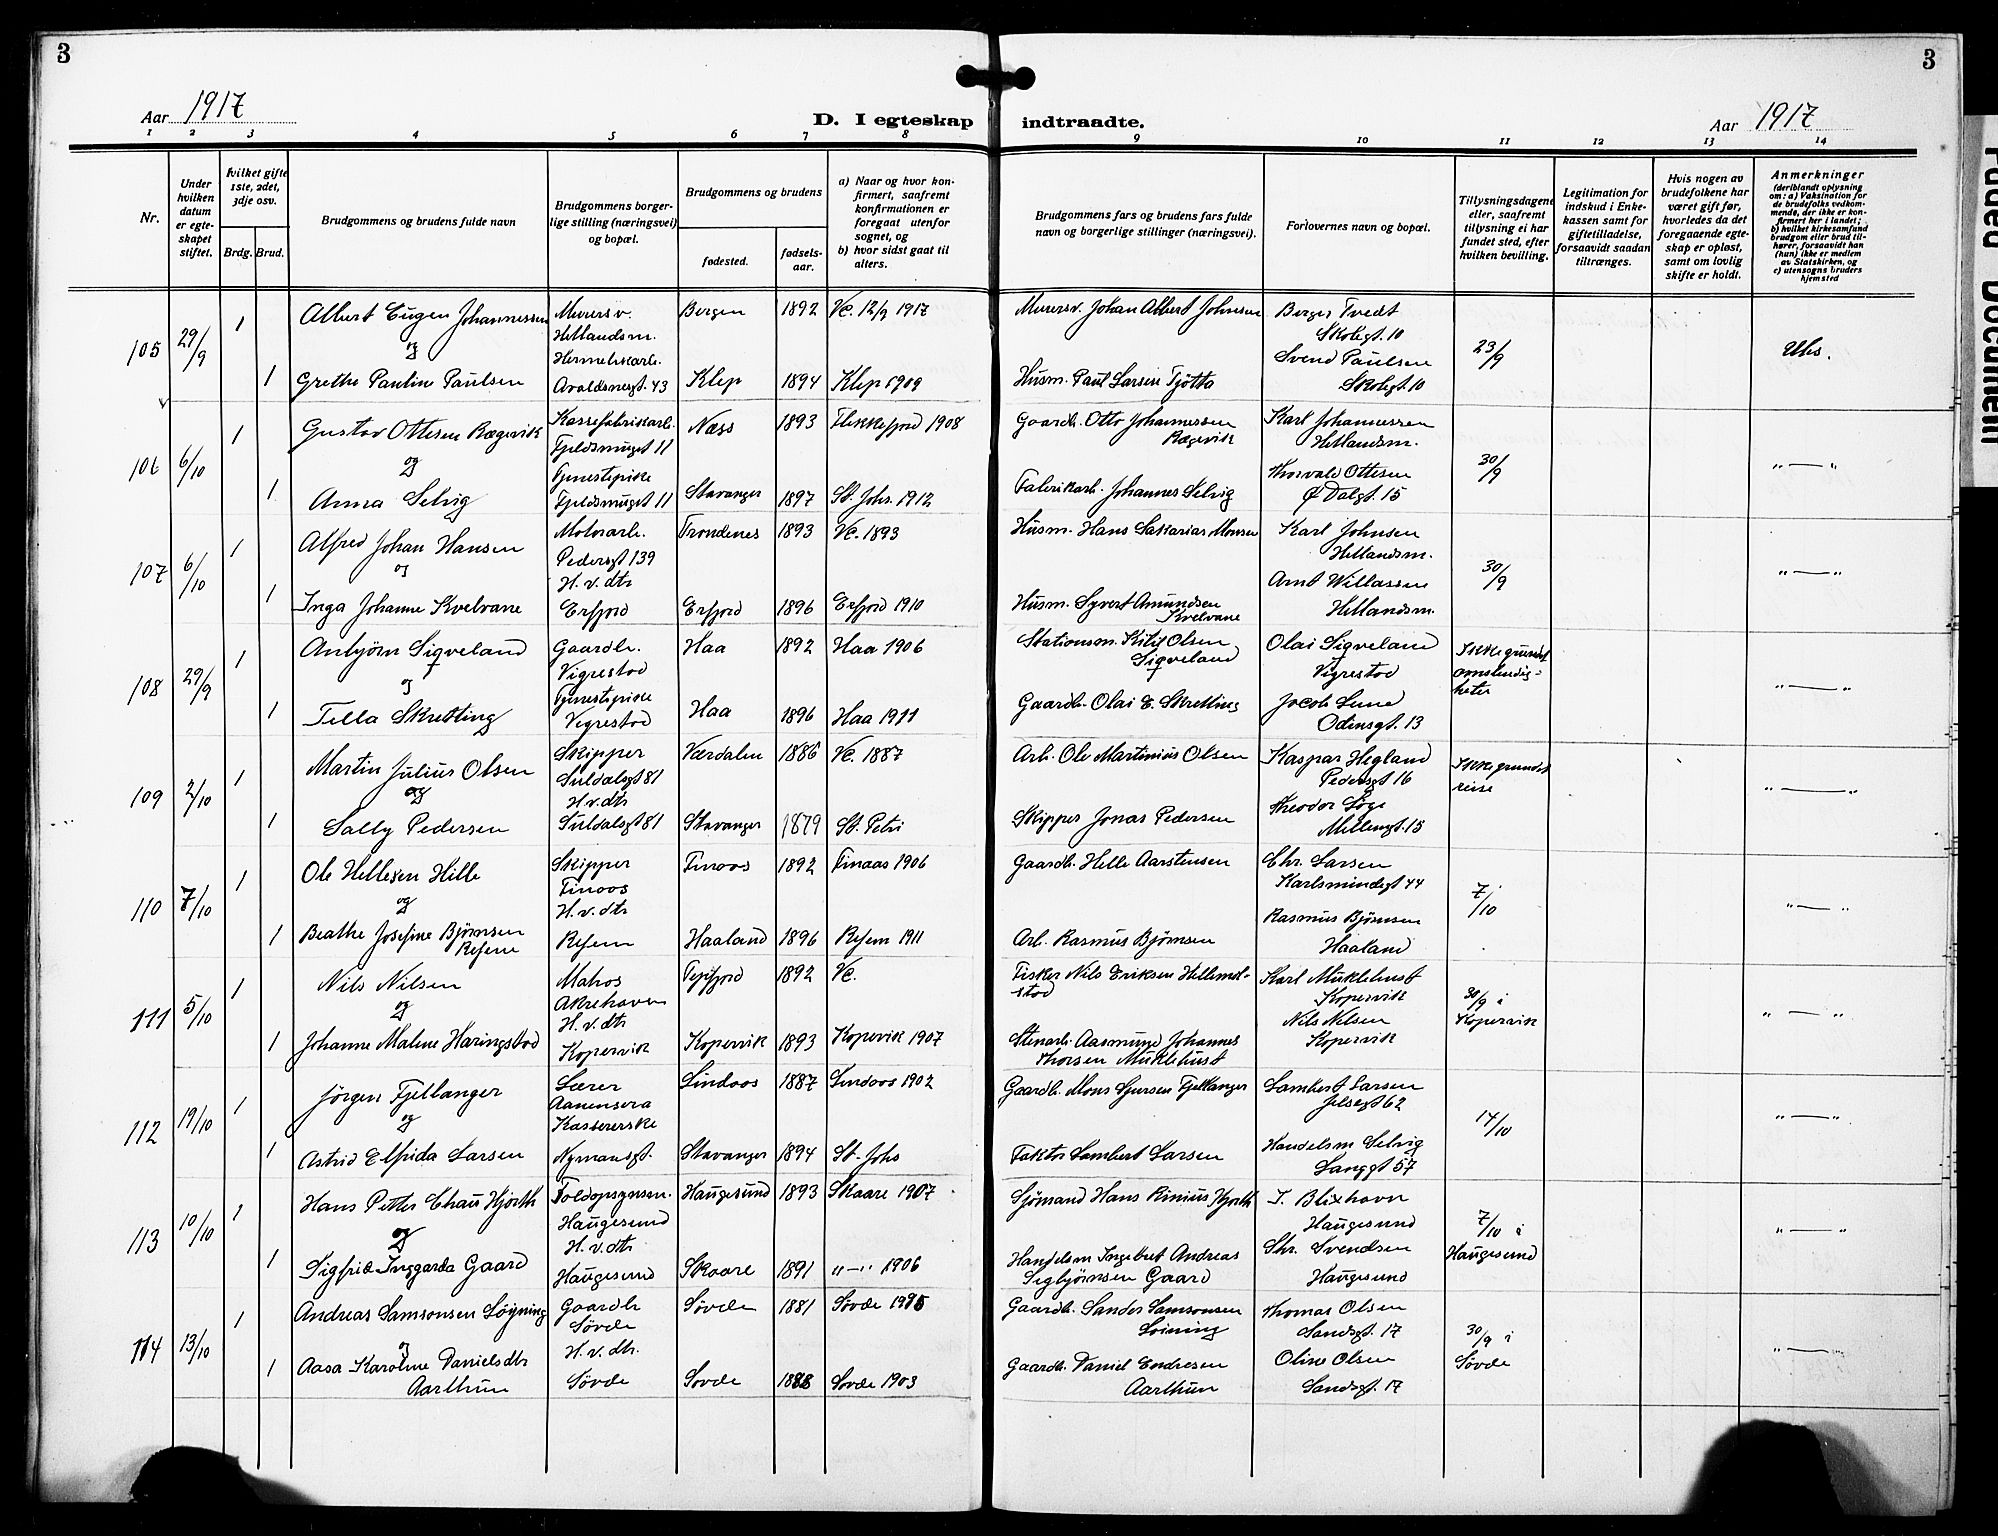 3
3
Aar 1917
D. I egteskap indtraadte.
Aar 1917
1 2 3 4 5 6 7 8 9 10 11 12 13 14
Nr.
Under hvilken datum er egte-skapet stiftet.
hvilket gifte 1ste, 2det, 3dje osv.
Brdg. Brud.
Brudgommens og brudens fulde navn
Brudgommens borger-lige stilling (næringsvei) og bopæl.
Brudgommens og brudens
fødested.
fødsels-aar.
a) Naar og hvor kon-firmert, saafremt konfirmationen er foregaat utenfor sognet, og
b) hvor sidst gaat til alters.
Brudgommens fars og brudens fars fulde navn og borgerlige stillinger (næringsvei).
Forlovernes navn og bopæl.
Tillysningsdagene eller, saafremt tillysning ei har fundet sted, efter hvilken bevilling.
Legitimation for indskud i Enke-kassen samt for giftetilladelse, forsaavidt saadan tiltrænges.
Hvis nogen av brudefolkene har været gift før, hvorledes da det foregaaende egte-skap er opløst, samt om lovlig skifte er holdt.
Anmerkninger
(deriblandt oplysning om: a) Vaksination for de brudefolks vedkom-mende, der ikke er kon-firmert her i landet; b) hvilket kirkesamfund brudgom eller brud til-hører, forsaavidt han (hun) ikke er medlem av Statskirken, og c) utensogns bruders hjemsted
105 29/9 1 Albert Eugen Johannessen Murersv. Hetlandsm. Bergen 1892 Vc. 12/9 1917 Murersv. Johan Albert Johnsen Berger Tvedt Skolegt. 10 23/9
og
1 Grethe Pauline Paulsen Hermetikarb. Avaldsnesgt. 43 Klep 1894 Klep 1909 Husm. Paul Larsen Tjøtta Svend Paulsen Skolegt. 10
106 6/10 1 Gustav Ottesen Rægevik Kassefabrikarb. Fjeldsmuget 11 Næss 1893 Flekkefjord 1908 Gaardb. Otto Johannessen Rægevik Karl Johannessen Hetlandsm. 30/9 "—"
og
1 Anna Selvig Tjenestepike Fjeldsmuget 11 Stavanger 1897 St. Johs. 1912 Fabrikarb. Johannes Selvig Thorvald Ottesen Ø Dalgt. 15
107 6/10 1 Alfred Johan Hansen Motorarb. Pedersgt 139 Trondenes 1893 Vc. 1893 Husm. Hans Sakarias Monsen Karl Johnsen Hetlandsm. 30/9 "—"
og
1 Inga Johanne Kvelvane H. v. dtr Erfjord Erfjord 1896 Erfjord 1910 Husm. Syvert Amundsen Kvelvane Arnt Willassen Hetlandsm.
108 29/9 1 Anbjørn Sigveland Gaardbr. Vigrestad Haa 1892 Haa 1906 Stationsm. Kitil Olsen Sigveland Olai Sigveland Vigrestad "—"
og
1 Tilla Skretting Tjenestepike Vigrestad Haa 1896 Haa 1911 Gaardb. Olai E. Skretting Jacob Lund Odinsgt. 13
109 2/10 1 Martin Julius Olsen Skipper Suldalsgt 81 Værdalen 1886 Vc. 1887 Arb. Ole Martinius Olsen Kaspar Hegland Pedersgt 16 Ikke grundet reise "—"
og
1 Sally Pedersen H. v. dtr Suldalsgt 81 Stavanger 1879 St. Petri Skipper Jonas Pedersen Theodor Løge Møllengt. 15
110 7/10 1 Ole Hellesen Hille Skipper Finaas Finaas 1892 Finaas 1906 Gaardb. Helle Aarstensen Chr. Larsen Karlsmindegt 44 7/10 "—"
og
1 Beathe Josefine Bjørnsen Refsem H. v. dtr Refsem Haaland 1896 Refsem 1911 Arb. Rasmus Bjørnsen Rasmus Bjørnsen Haaland
111 5/10 1 Nils Nilsen Matros Akrehavn 1892 Vc. Fisker Nils Eriksen Karl Muklebust Kopervik 30/9 i Kopervik "—"
og
1 Johanne Malene Haringstad H. v. dtr Kopervik Kopervik 1893 Kopervik 1907 Stenarb. Aasmund Johannes Thorsen Muklebust Nils Nilsen Kopervik
112 19/10 1 Jørgen Fjellanger Lærer Aanensera Lindaas 1887 Lindaas 1902 Gaardb. Mons Sjursen Fjellanger Lambert Larsen Jelsegt 62 14/10 "—"
og
1 Astrid Elfrida Larsen Kassererske Nymansgt. Stavanger 1894 St. Johs Faktor Lambert Larsen Handelsm Selvig Langgt 57
113 10/10 1 Hans Petter Chau Hjorth Toldopsynsm. Haugesund Haugesund 1893 Skaare 1907 Sjømand Hans Rinius Hjorth T. Blixhavn Haugesund 7/10 i Haugesund "—"
og
1 Sigfrid Inggarda Gaard H. v. dtr Haugesund Skaare 1891 "—" 1906 Handelsm Ingebret Andreas Sigbjørnsen Gaard Chr. Svendsen Haugesund
114 13/10 1 Andreas Samsonsen Løyning Gaardb Søvde Søvde 1881 Søvde Gaardb. Sander Samsonsen Løining Thomas Olsen Sandsgt. 17 30/9 i Søvde "—"
og
1 Aasa Karoline Danielsdtr Aarthun H. v. dtr. Søvde Søvde 1888 Søvde 1903 Gaardb. Daniel Endresen Aarthun Oline Olsen Sandsgt. 17